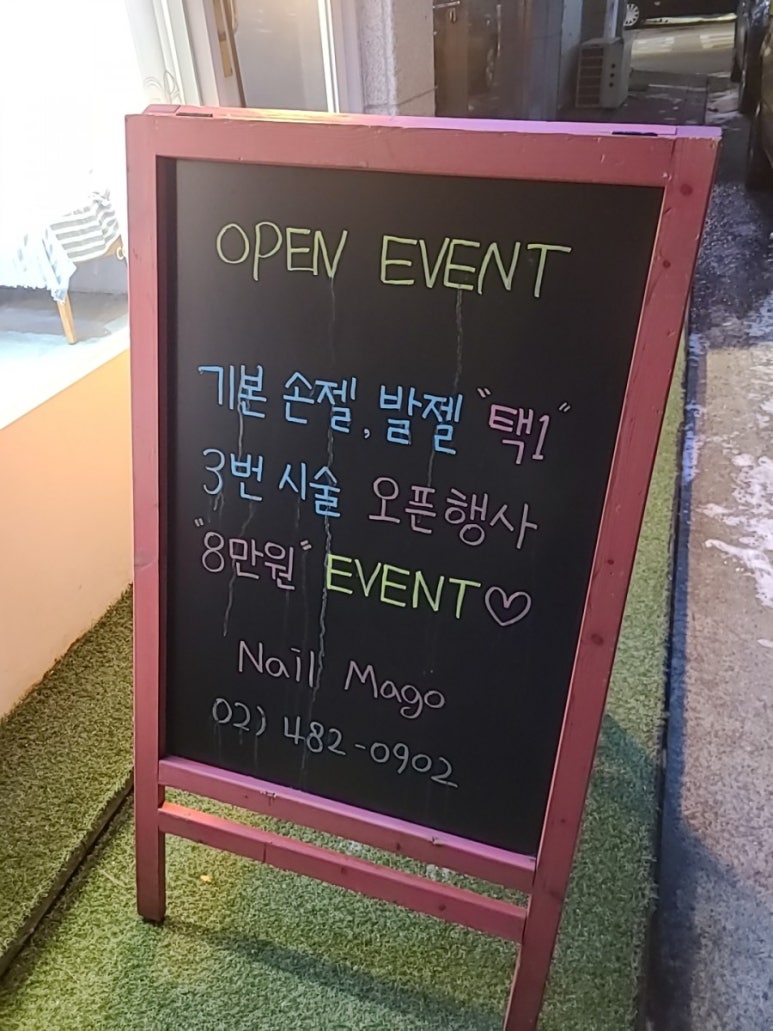 OPEN EVENT
기본 손젤, 발젤 "택1"
3번 시술 오픈행사
"8만원" EVENT♡
Nail Mago
02) 482-0902